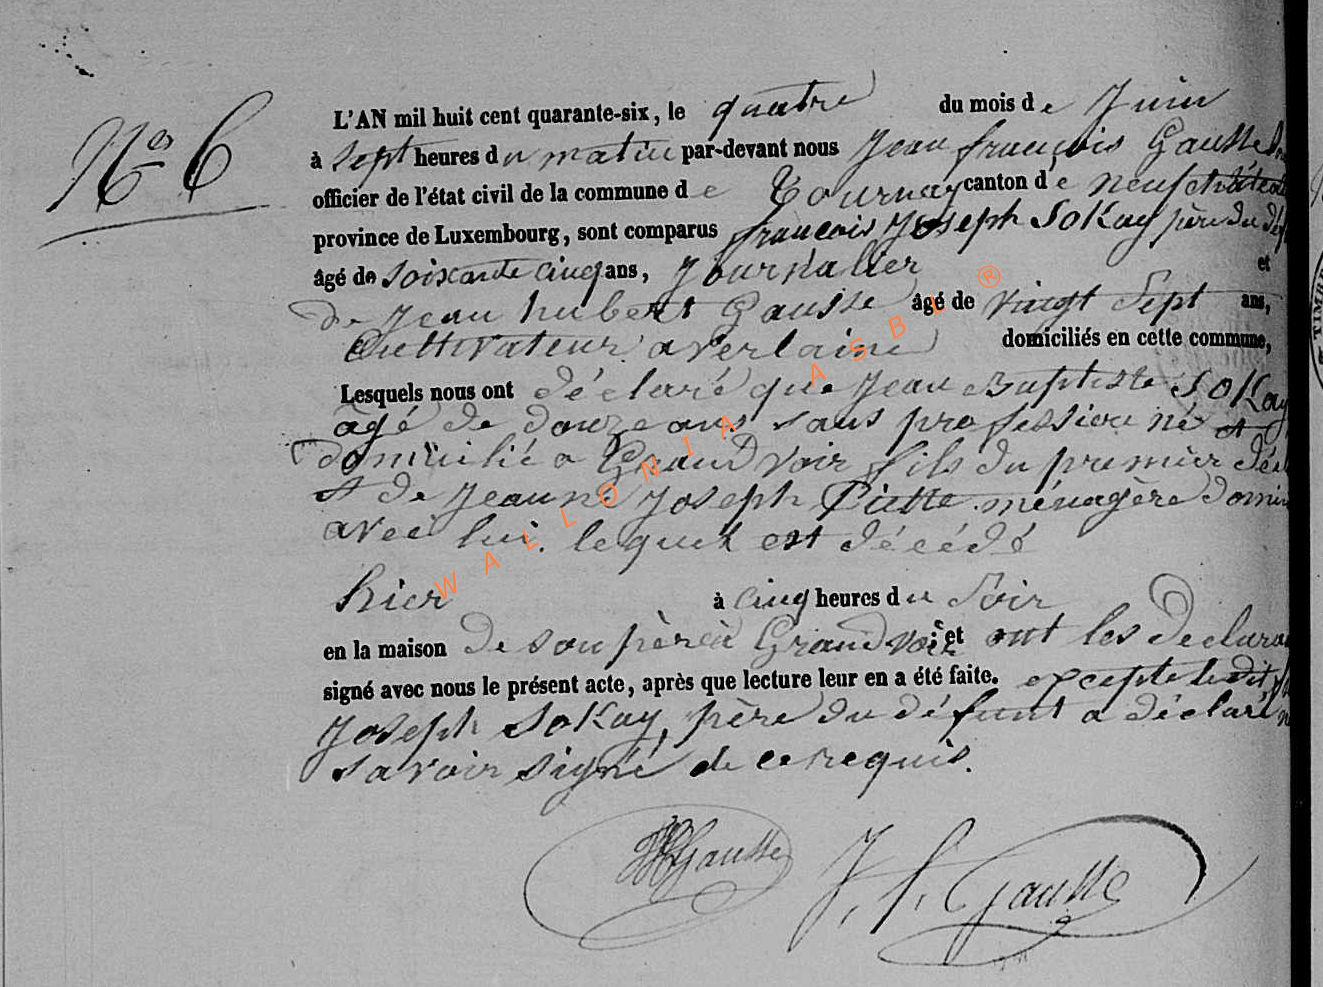 N.o 6
L'AN mil huit cent quarante-six, le quatre du mois de Juin
à sept heures du matin par-devant nous Jean françois Gausse
officier de l'état civil de la commune de Tournay canton de neufchâteau
province de Luxembourg, sont comparus françois Joseph Sokay père du
âgé de soixante cinq ans, Journalier et
de Jean hubert Gausse âgé de vingt Sept ans,
Cultivateur a verlaine domiciliés en cette commune,
Lesquels nous ont déclaré que Jean Baptiste Sokay
âgé de douze ans sans profession né et
domicilié a Grandvoir fils du premier
et de Jeanne Joseph Piette ménagère
avec lui. lequel est décédé
hier à cinq heures du Soir
en la maison de son père à Grandvoir ; et ont les
signé avec nous le présent acte, après que lecture leur en a été faite. excepté ledit
Joseph Sokay, père du défunt a déclaré
savoir signé de ce requis.
JH Gausse J. f. Gausse
WALLONIA ASBL ®
TIMBRE